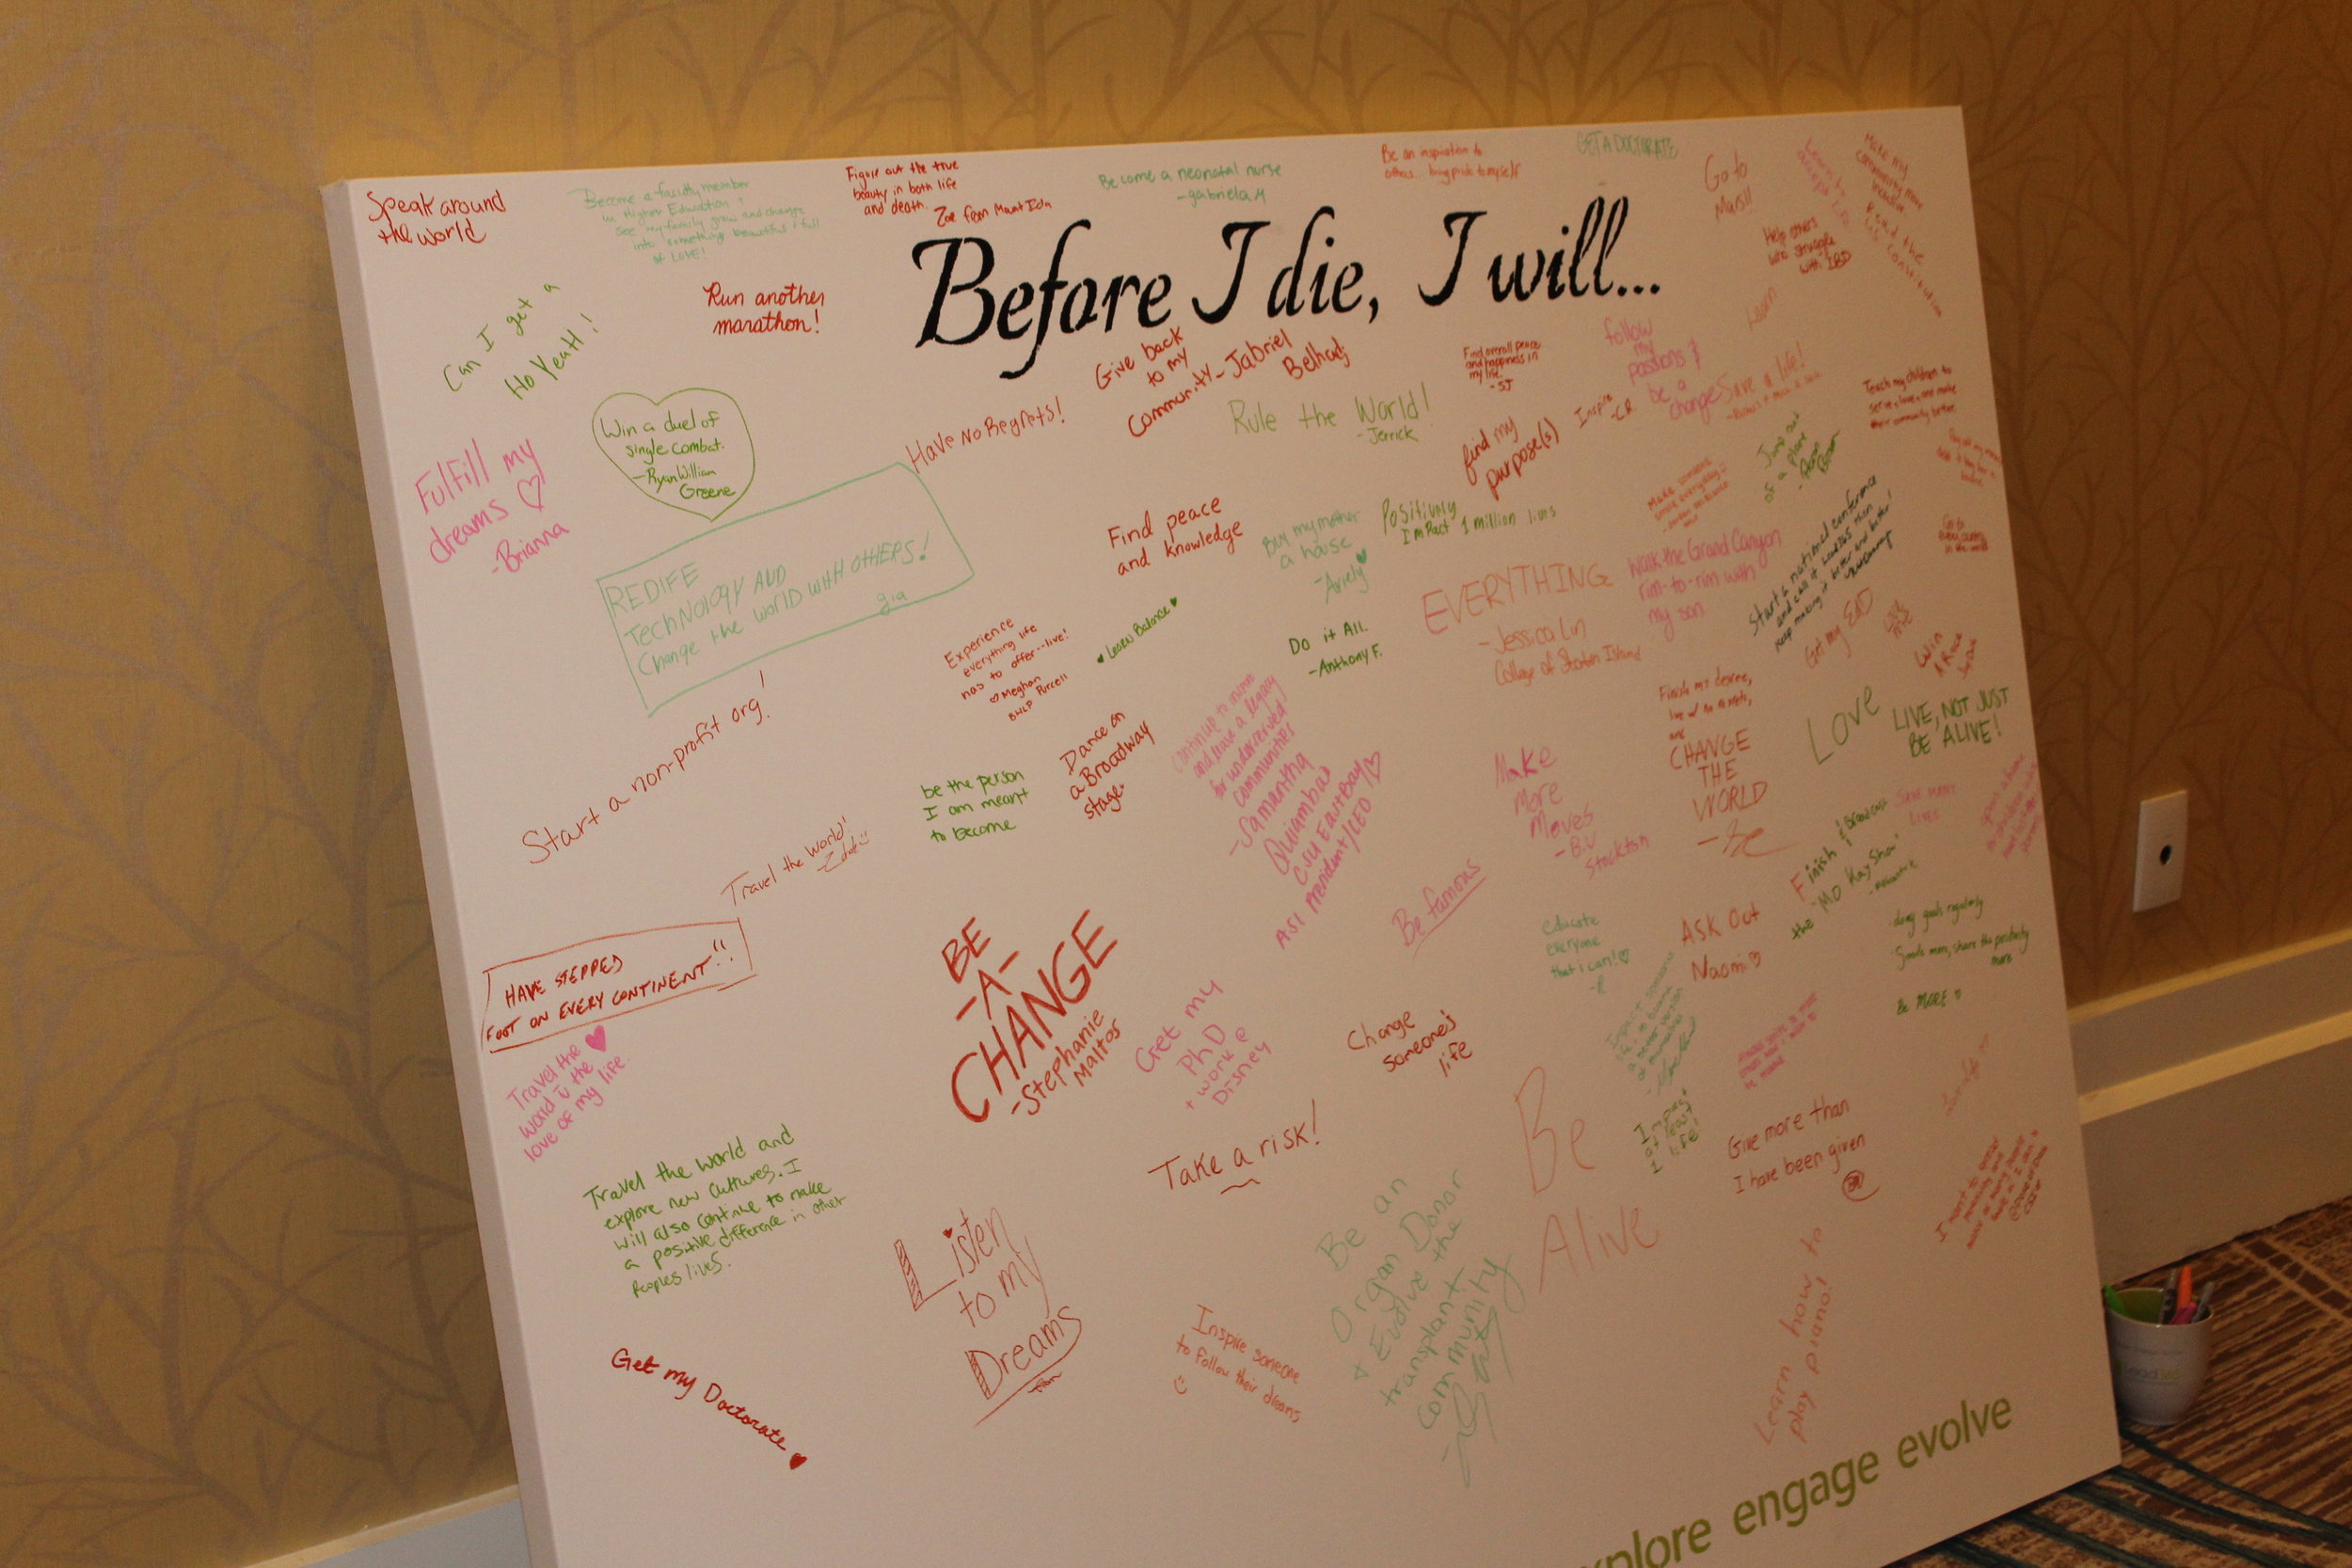 Before I die, I will...
Speak around
the world
Become a faculty member
in Higher Education +
see my family grow and change
into something beautiful & full
of LOVE!
Figure out the true
beauty in both life
and death.
Zoe from Mount Ida
Become a neonatal nurse
-gabriela M
Be an inspiration to
others... bring pride to myself
GET A DOCTORATE
Go to
Mars!!
Learn to
accept
Make my
community more
inclusive
Read the
US Constitution
Help others
who struggle
with IBD
Learn
Can I get a
Ho Yeah!
Run another
marathon!
Give back
to my
Community - Jabriel
Belhadj
Find overall peace
and happiness in
my life.
- SJ
follow
my
passions &
be
a
change
Save a life!
Teach my children to
serve, love, and make
their community better.
Win a duel of
single combat.
- Ryan William
Greene
Have No Regrets!
Rule the World!
- Jerrick
find my
purpose(s)
Inspire
- CR
Jump out
of a plane
Fulfill my
dreams ♡
-Brianna
REDIFE
TechNOlOgy AND
Change the worlD with OTHERS!
gia
Find peace
and knowledge
Buy my mother
a house
- Ariely
Positively
Impact 1 million lives
Make someone
smile everyday
Start a national conference
and call it LeadDis then
keep making it better and better
Go to
every country
in the world
EVERYTHING
- Jessica Lin
College of Staten Island
Walk the Grand Canyon
rim-to-rim with
my son
Get my EdD
Experience
everything life
has to offer--live!
♡ Meghan
Purcell
BHLP
♥ Learn Balance ♥
Do it All.
- Anthony F.
Win
A Road
Start a non-profit org!
Continue to move
and leave a legacy
for underserved
communities
-Samantha
Quiambao
CSU East Bay
ASI President/CEO ♡
Finish my degree,
live w/ no regrets,
and
CHANGE
THE
WORLD
Love
LIVE, NOT JUST
BE ALIVE!
be the person
I am meant
to become
Dance on
a Broadway
stage.
Make
More
Moves
- B.V
Stockton
Save many
lives
Travel the world!
Finish & Broadcast
the "MO Kay Show"
HAVE STEPPED
FOOT ON EVERY CONTINENT!!
BE
-A-
CHANGE
-Stephanie
Maltos
Be famous
educate
everyone
that i can! ♡
- R
Ask Out
Naomi ♡
doing goals regularly
Smile more, share the positivity
more
Be MORE ♡
Travel the
world w the
love of my life
Get my
PhD
+ work @
Disney
Change
someone's
life
Travel the world and
explore new cultures. I
will also continue to make
a positive difference in other
peoples lives.
Take a risk!
Be
Alive
Impact
at least
1 life!
Give more than
I have been given
Listen
to my
Dreams
Be an
Organ Donor
+ Evolve the
transplant
community
Learn how to
play piano!
Get my Doctorate ♥
Inspire someone
to follow their dreams
xplore engage evolve